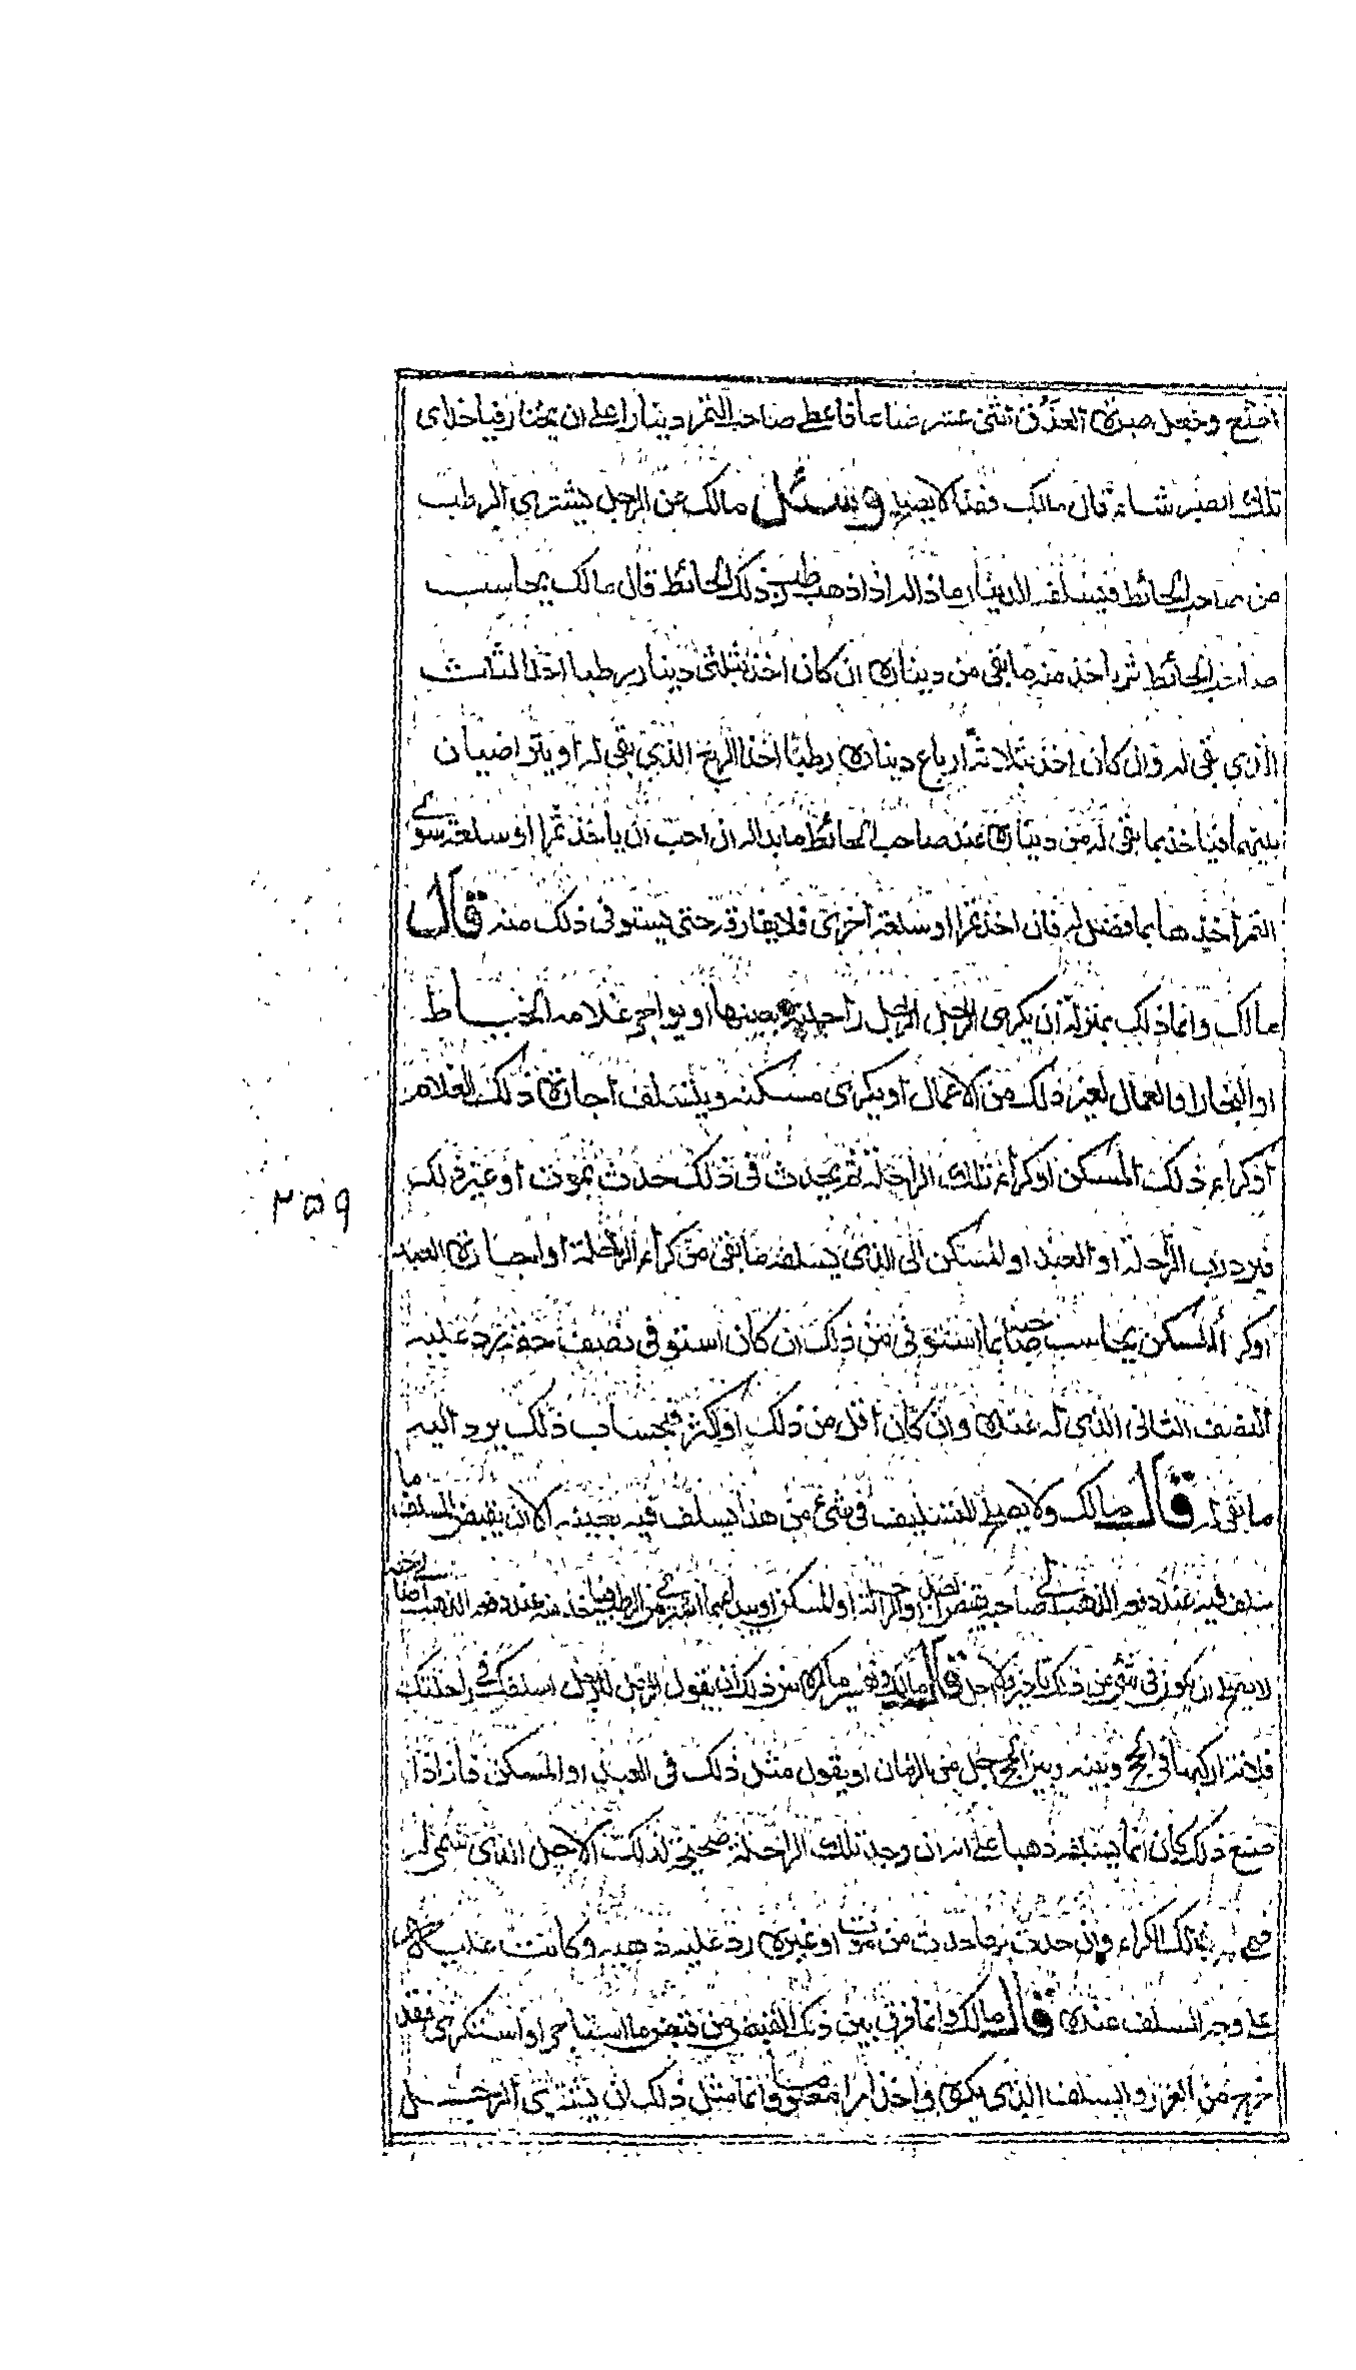 اصوع وجعل صبرة العذق اثنى عشر صاعا فاعطى صاحب التمر دينارا على ان يختار فياخذ اى
تلك الصبر شاء قال مالك فهذا لا يصلح وسئل مالك عن الرجل يشترى الرطب
من صاحب الحائط فيسلفه الدينار ماذا له اذا ذهب رطب ذلك الحائط قال مالك يحاسب
صاحب الحائط ثم ياخذ منه ما بقى من ديناره ان كان اخذ بثلثى دينار رطبا اخذ الثلث
الذى بقى له وان كان اخذ بثلاثة ارباع ديناره رطبا اخذ الربع الذى بقى له او يتراضيان
بينهما فياخذ بما بقى له من ديناره عند صاحب الحائط ما بدا له ان احب ان ياخذ تمرا او سلعة سوى
التمر اخذها بما فضل له فان اخذ تمرا او سلعة اخرى فلا يفارقه حتى يستوفى ذلك منه قال
مالك وانما ذلك بمنزلة ان يكرى الرجل الرجل راحلة بعينها او يواجر غلامه الخياط
او النجار او العمال لغير ذلك من الاعمال او يكرى مسكنه ويستلف اجارة ذلك الغلام
او كراء ذلك المسكن او كراء تلك الراحلة ثم يحدث فى ذلك حدث بموت او غير ذلك
فيرد رب الراحلة او العبد او المسكن الى الذى يسلفه ما بقى من كراء الراحلة او اجارة العبد
او كراء المسكن يحاسب صاحبه بما استوفى من ذلك ان كان استوفى نصف حقه رد عليه
النصف الثانى الذى له عنده وان كان اقل من ذلك او اكثر فبحساب ذلك يرد اليه
ما بقى له قال مالك ولا يصلح التسليف فى شئ من هذا يسلف فيه بعينه الا ان يقبض المسلف ما
سلف فيه عند دفعه الذهب الى صاحبه يقبض العبد او الراحلة او المسكن او يبدا فيما اشترى من الرطب فياخذ منه عند دفعه الذهب الى صاحبه
لا يصلح ان يكون فى شئ من ذلك تاخير ولا اجل قال مالك وتفسير ما كره من ذلك ان يقول الرجل للرجل اسلفك فى راحلتك
فلانة اركبها فى الحج وبينه وبين الحج اجل من الزمان او يقول مثل ذلك فى العبد او المسكن فانه اذا
صنع ذلك كان انما يسلفه ذهبا على انه ان وجد تلك الراحلة صحيحة لذلك الاجل الذى سمى له
فهى له بذلك الكراء وان حدث بها حدث من موت او غيره رد عليه ذهبه وكانت عليه
على وجه السلف عنده قال مالك وانما فرق بين ذلك القبض من قبض ما استاجر او استكرى فقد
خرج من الغرر والسلف الذى يكره واخذ امرا معلوما وانما مثل ذلك ان يشترى الرجل
٣٥٩